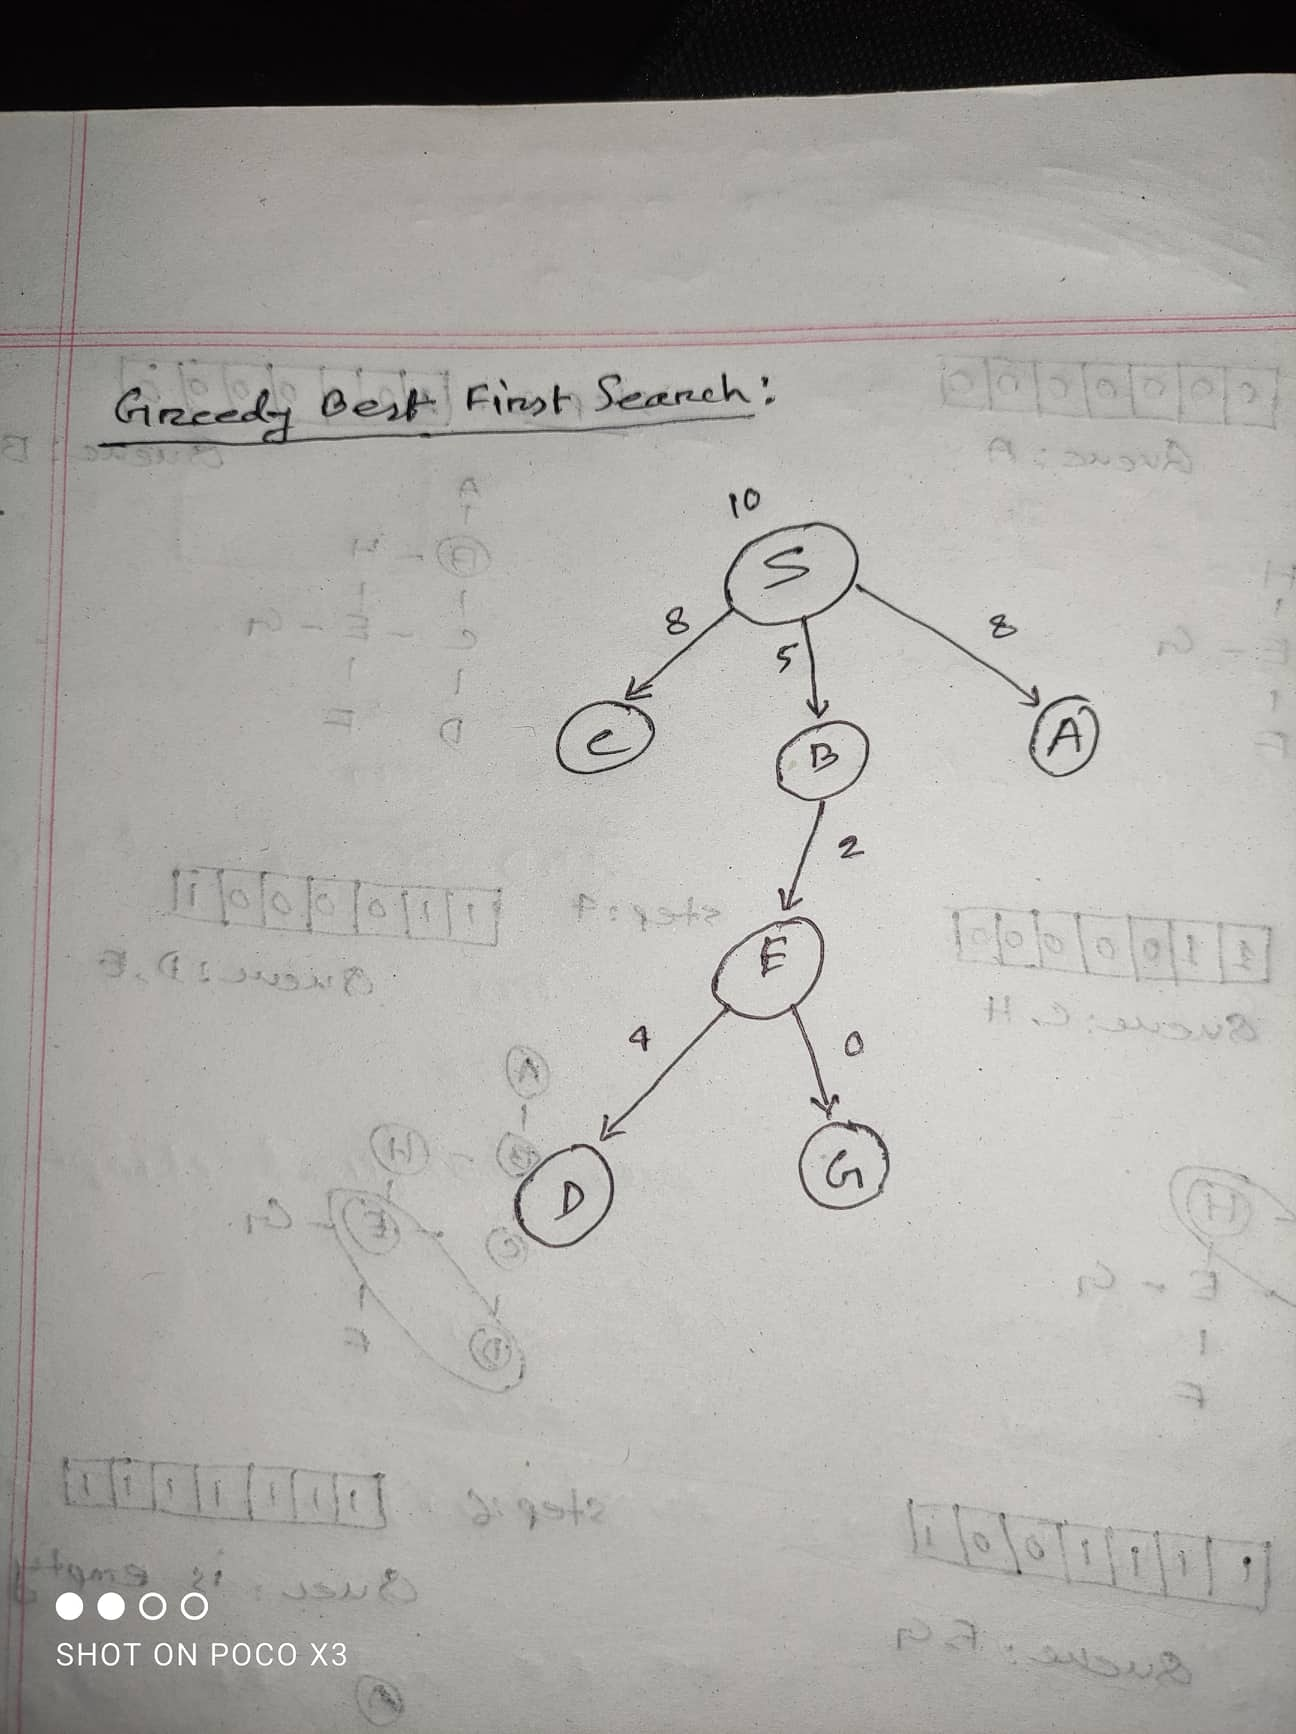 Greedy Best First Search:
10
S
8
5
8
C
B
A
2
E
4
0
D
G
SHOT ON POCO X3